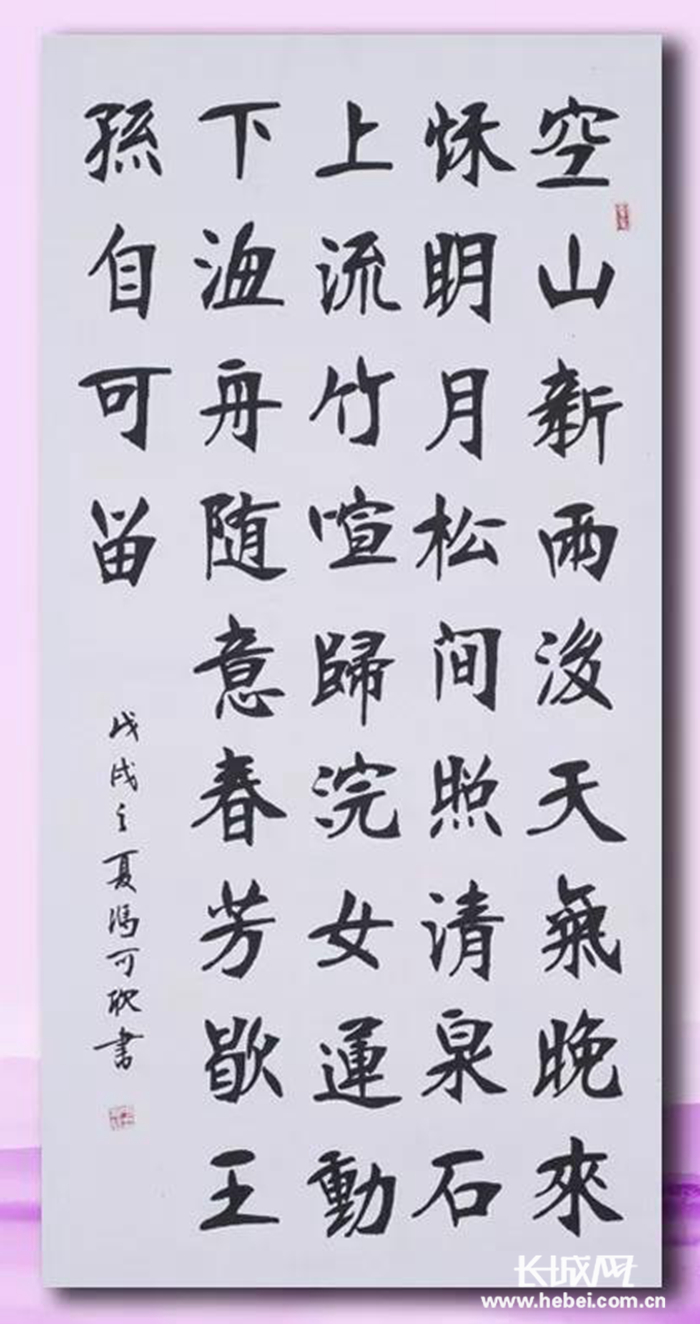 空山新雨後天氣晚來
秋明月松间照清泉石
上流竹喧歸浣女運動
下渔舟随意春芳歇王
孫自可留
戊戌之夏馮可書
长城网
www.hebei.com.cn